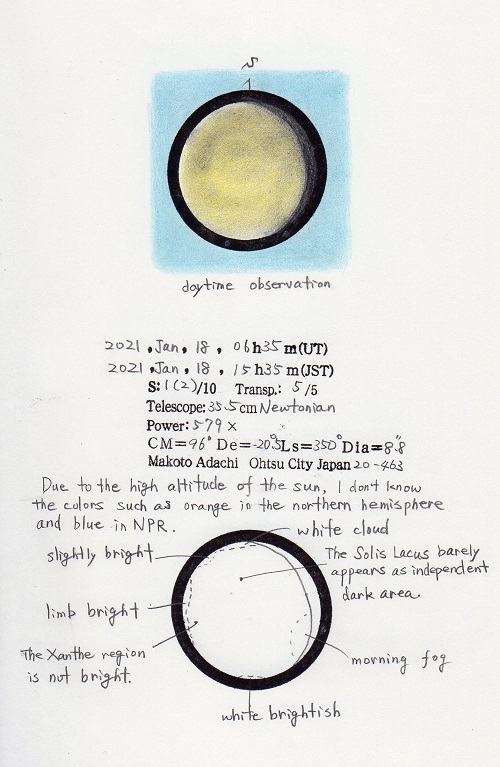 S
daytime observation
2021, Jan, 18, 06h35m(UT)
2021, Jan, 18, 15h35m(JST)
S:1(2)/10 Transp.: 5/5
Telescope:35.5cm Newtonian
Power:579×
CM=96° De=-20.°5 Ls=350° Dia=8."8
Makoto Adachi Ohtsu City Japan 20-463
Due to the high altitude of the sun, I don't know
the colors such as orange in the northern hemisphere
and blue in NPR.
white cloud
slightly bright
The Solis Lacus barely
appears as independent
dark area
limb bright
The Xanthe region
is not bright.
morning fog
white brightish